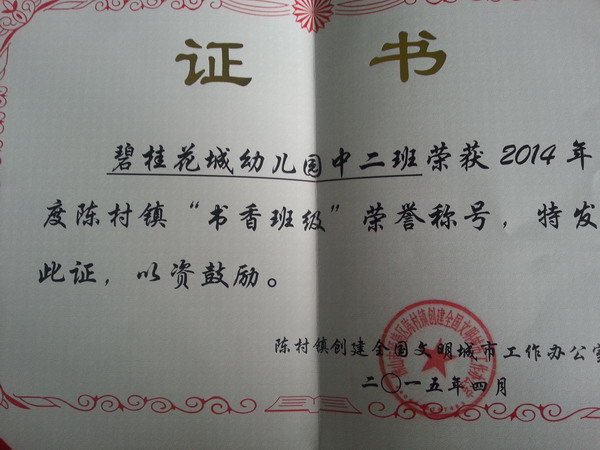 证 书
碧桂花城幼儿园中二班荣获2014年
度陈村镇“书香班级”荣誉称号，特发
此证，以资鼓励。
陈村镇创建全国文明城市工作办公室
二〇一五年四月